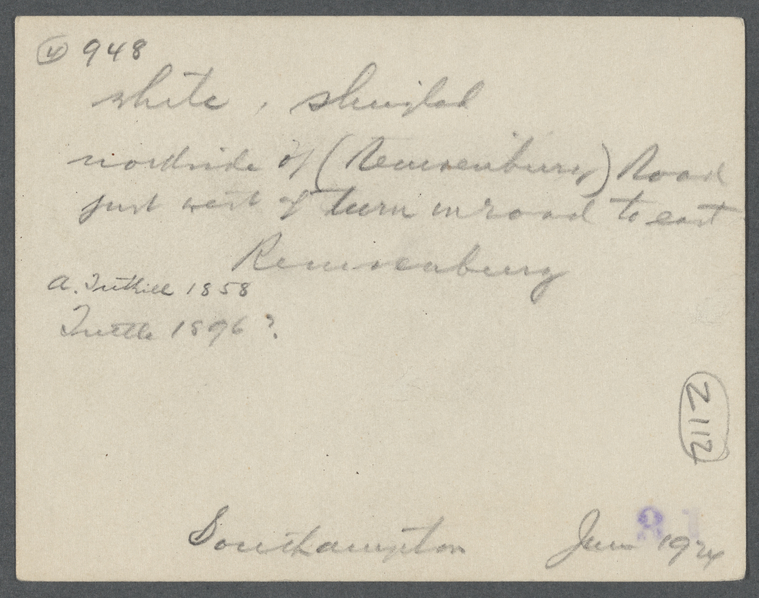 4 948
white, shingled
northside of (Remsenburg) Road
just west of turn in road to east
Remsenburg
A. Tuthill 1858
Tuttle 1896?
Z112
Southampton June 1924
31